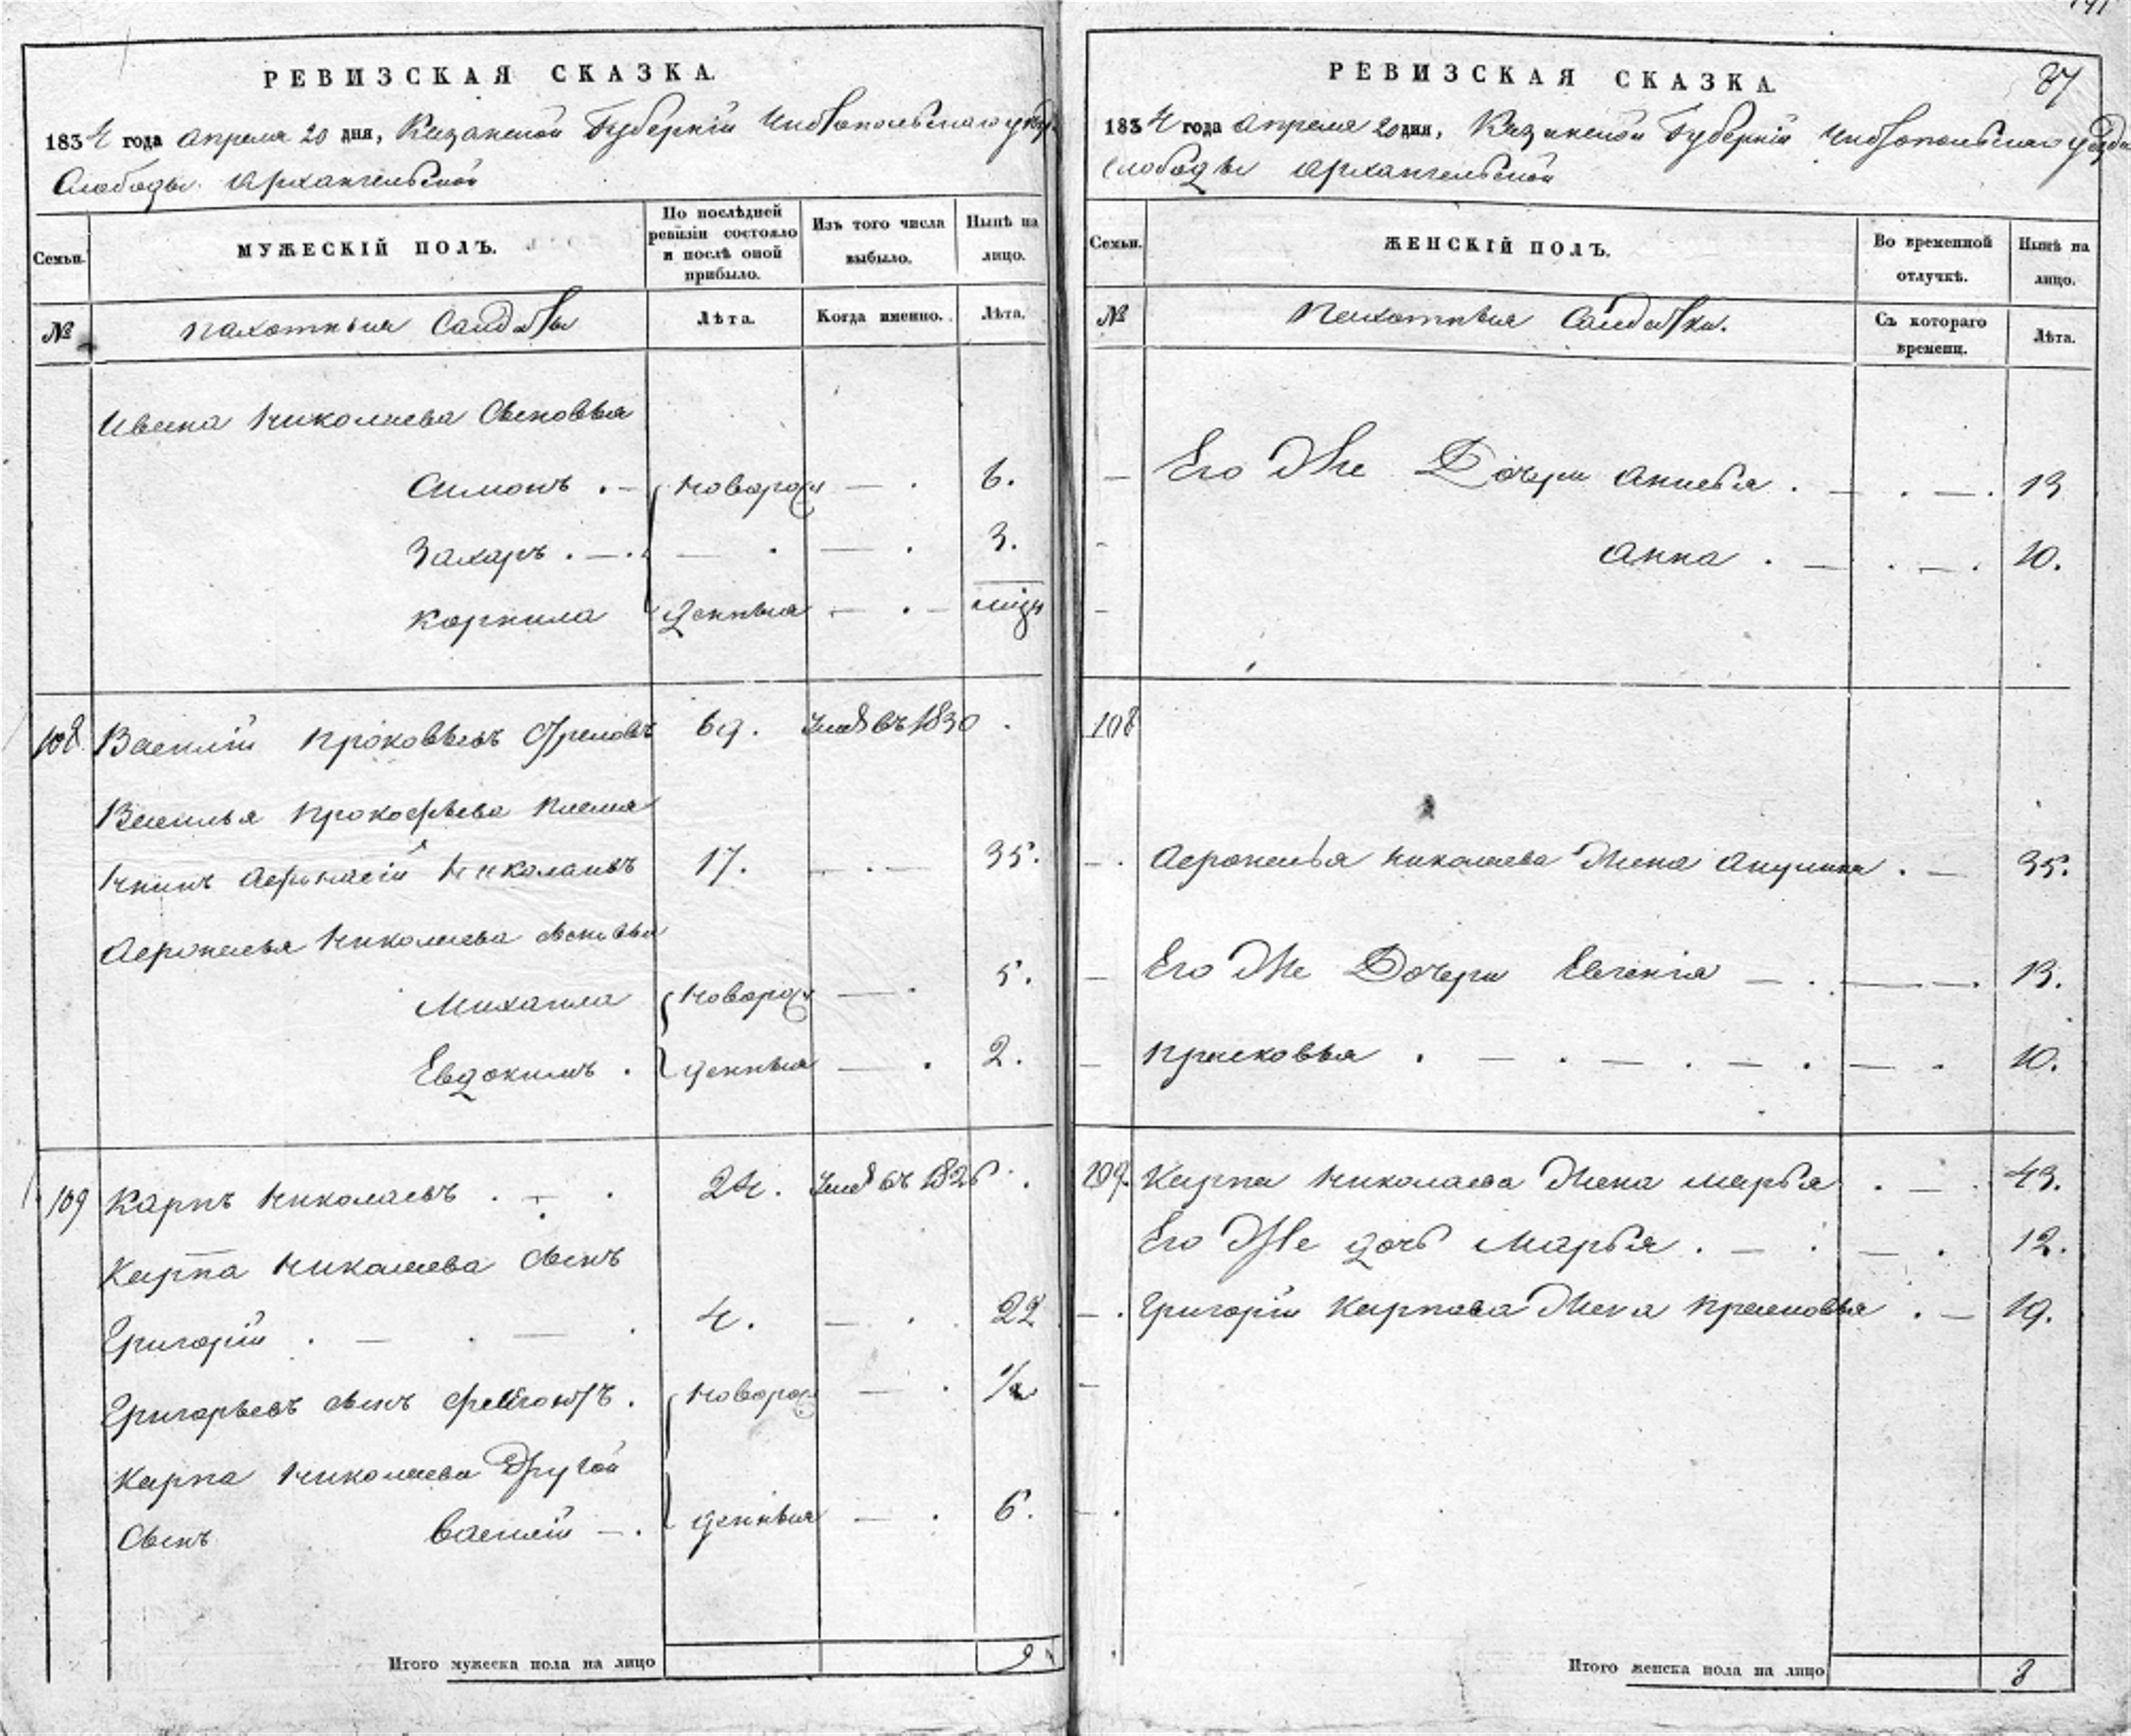 РЕВИЗСКАЯ СКАЗКА.
1834 года апреля 20 дня, Казанской Губернiи Чистопольскаго уезда
Слободы Архангельской
Семьи.
МУЖЕСКIЙ ПОЛЪ.
По послѣдней ревизiи состояло и послѣ оной прибыло.
Изъ того числа выбыло.
Нынѣ на лицо.
№
пахотныя Солдаты
Лѣта.
Когда именно.
Лѣта.
Ивана Николаева Сыновья
Симонъ . – новорож – . 6.
Захаръ . – . – . – . 3.
Корнила денныя – . –
108 Василiй Прокофьевъ 69. в 1830 .
Василья Прокофьева племя
нникъ Афонасiй Николаивъ 17. . . – 35.
Афонасья Николаева сыновья
Михаила новорож – . 5.
Евдокимъ . денныя – . 2.
109 Карпъ Николаевъ . – . 24. въ 1826 .
Карпа Николаева сынъ
Григорiй . – . – . 4. – . . 22
Григорьевъ сынъ . новорож – . 1/2
Карпа Николаева Другой
Сынъ Василiй – . денныя – . 6.
Итого мужеска пола на лицо 9
РЕВИЗСКАЯ СКАЗКА.
87
1834 года апреля 20 дня, Казанской Губернiи Чистопольскаго уезда
Слободы Архангельской
Семьи.
ЖЕНСКIЙ ПОЛЪ.
Во временной отлучкѣ.
Нынѣ на лицо.
№
Пахотныя Солдатки.
Съ котораго времени.
Лѣта.
– Его Же Дочери Анисья . – . – . 13
- Анна . – . – . 10.
108
– . Афонасья Николаева Жена Акулина . – 35.
– Его Же Дочери Евгенiя – . – – . 13.
– Прасковья . – . – . – . – . 10.
109. Карпа Николаева Жена Марья . – . 43.
Его Же дочь Марья . – . – . 12.
– . Григорiя Карпова Жена Прасковья . – 19.
Итого женска пола на лицо 8